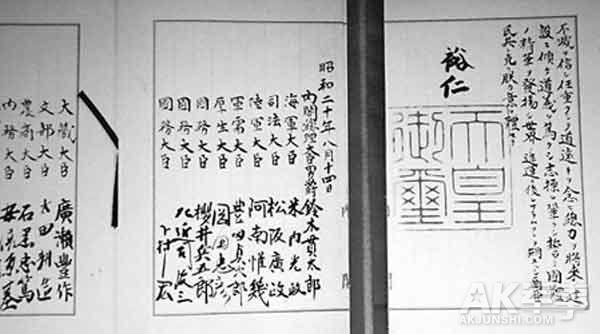 不滅ヲ信シ任重クシテ道遠キヲ念ヒ總力ヲ將來ノ建
設ニ傾ケ道義ヲ篤クシ志操ヲ鞏クシ誓テ國體
ノ精華ヲ發揚シ世界ノ進運ニ後レサラムコトヲ期スヘシ爾臣
民其レ克ク朕カ意ヲ體セヨ
裕仁
天皇
御璽
昭和二十年八月十四日
内閣總理大臣男爵 鈴木貫太郎
海軍大臣 米内光政
司法大臣 松阪廣政
陸軍大臣 阿南惟幾
軍需大臣 豊田貞次郎
厚生大臣 岡田忠彦
國務大臣 櫻井兵五郎
國務大臣 左近司政三
國務大臣 下村宏
大藏大臣 廣瀬豊作
文部大臣 太田耕造
農商大臣 石黒忠篤
内務大臣 安倍源基
AK军事
AKJUNSHI.COM